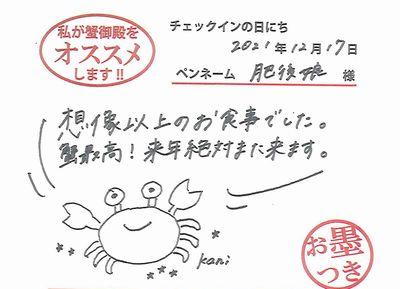 私が蟹御殿を
オススメ
します!!
チェックインの日にち
2021年12月17日
ペンネーム 肥後娘 様
想像以上のお食事でした。
蟹最高!来年絶対また来ます。
kani
お墨
つき